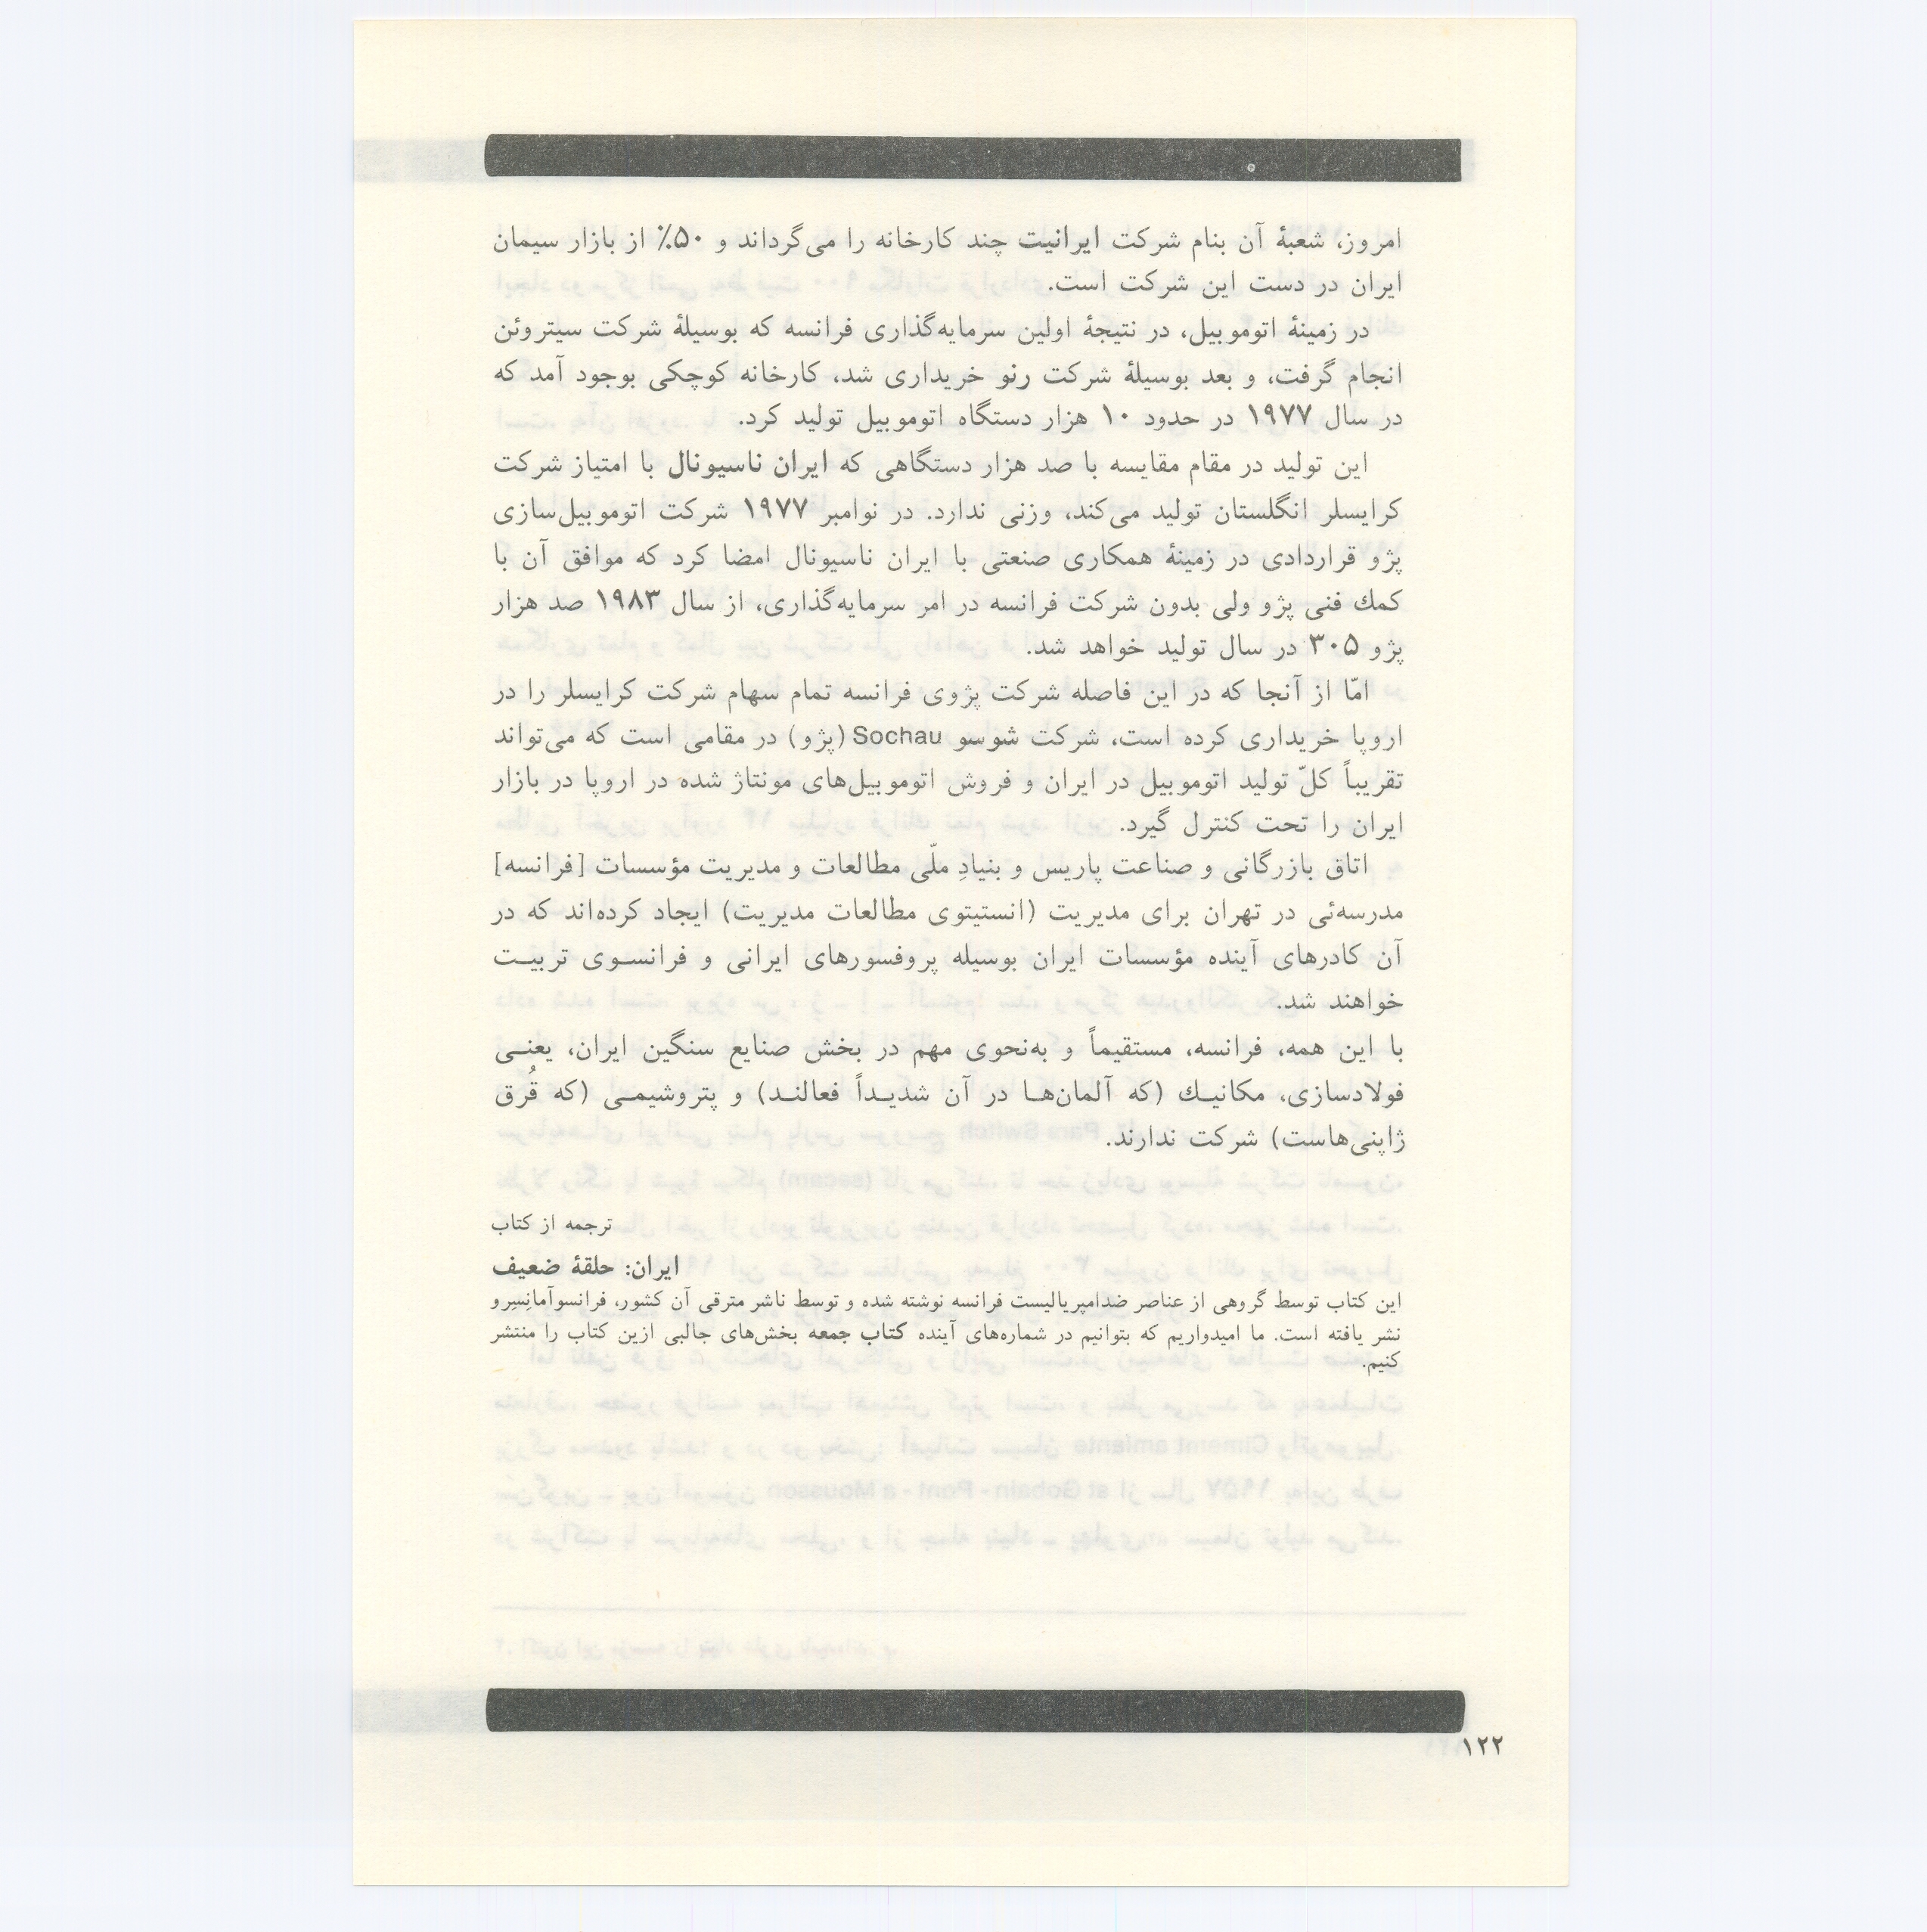 امروز، شعبهٔ آن بنام شرکت ایرانیت چند کارخانه را می‌گرداند و ۵۰٪ از بازار سیمان
ایران در دست این شرکت است.
در زمینهٔ اتوموبیل، در نتیجهٔ اولین سرمایه‌گذاری فرانسه که بوسیلهٔ شرکت سیتروئن
انجام گرفت، و بعد بوسیلهٔ شرکت رنو خریداری شد، کارخانه کوچکی بوجود آمد که
در سال ۱۹۷۷ در حدود ۱۰ هزار دستگاه اتوموبیل تولید کرد.
این تولید در مقام مقایسه با صد هزار دستگاهی که ایران ناسیونال با امتیاز شرکت
کرایسلر انگلستان تولید می‌کند، وزنی ندارد. در نوامبر ۱۹۷۷ شرکت اتوموبیل‌سازی
پژو قراردادی در زمینهٔ همکاری صنعتی با ایران ناسیونال امضا کرد که موافق آن با
کمك فنی پژو ولی بدون شرکت فرانسه در امر سرمایه‌گذاری، از سال ۱۹۸۳ صد هزار
پژو ۳۰۵ در سال تولید خواهد شد.
امّا از آنجا که در این فاصله شرکت پژوی فرانسه تمام سهام شرکت کرایسلر را در
اروپا خریداری کرده است، شرکت شوسو Sochau (پژو) در مقامی است که می‌تواند
تقریباً کلّ تولید اتوموبیل در ایران و فروش اتوموبیل‌های مونتاژ شده در اروپا در بازار
ایران را تحت کنترل گیرد.
اتاق بازرگانی و صناعت پاریس و بنیادِ ملّی مطالعات و مدیریت مؤسسات [فرانسه]
مدرسه‌ئی در تهران برای مدیریت (انستیتوی مطالعات مدیریت) ایجاد کرده‌اند که در
آن کادرهای آینده مؤسسات ایران بوسیله پروفسورهای ایرانی و فرانسـوی تربیـت
خواهند شد.
با این همه، فرانسه، مستقیماً و به‌نحوی مهم در بخش صنایع سنگین ایران، یعنـی
فولادسازی، مکانیـك (که آلمان‌هـا در آن شدیـداً فعالنـد) و پتروشیمـی (که قُرق
ژاپنی‌هاست) شرکت ندارند.
ترجمه از کتاب
ایران: حلقهٔ ضعیف
این کتاب توسط گروهی از عناصر ضدامپریالیست فرانسه نوشته شده و توسط ناشر مترقی آن کشور، فرانسوآمانِسپِرو
نشر یافته است. ما امیدواریم که بتوانیم در شماره‌های آینده کتاب جمعه بخش‌های جالبی ازین کتاب را منتشر
کنیم.
۱۲۲